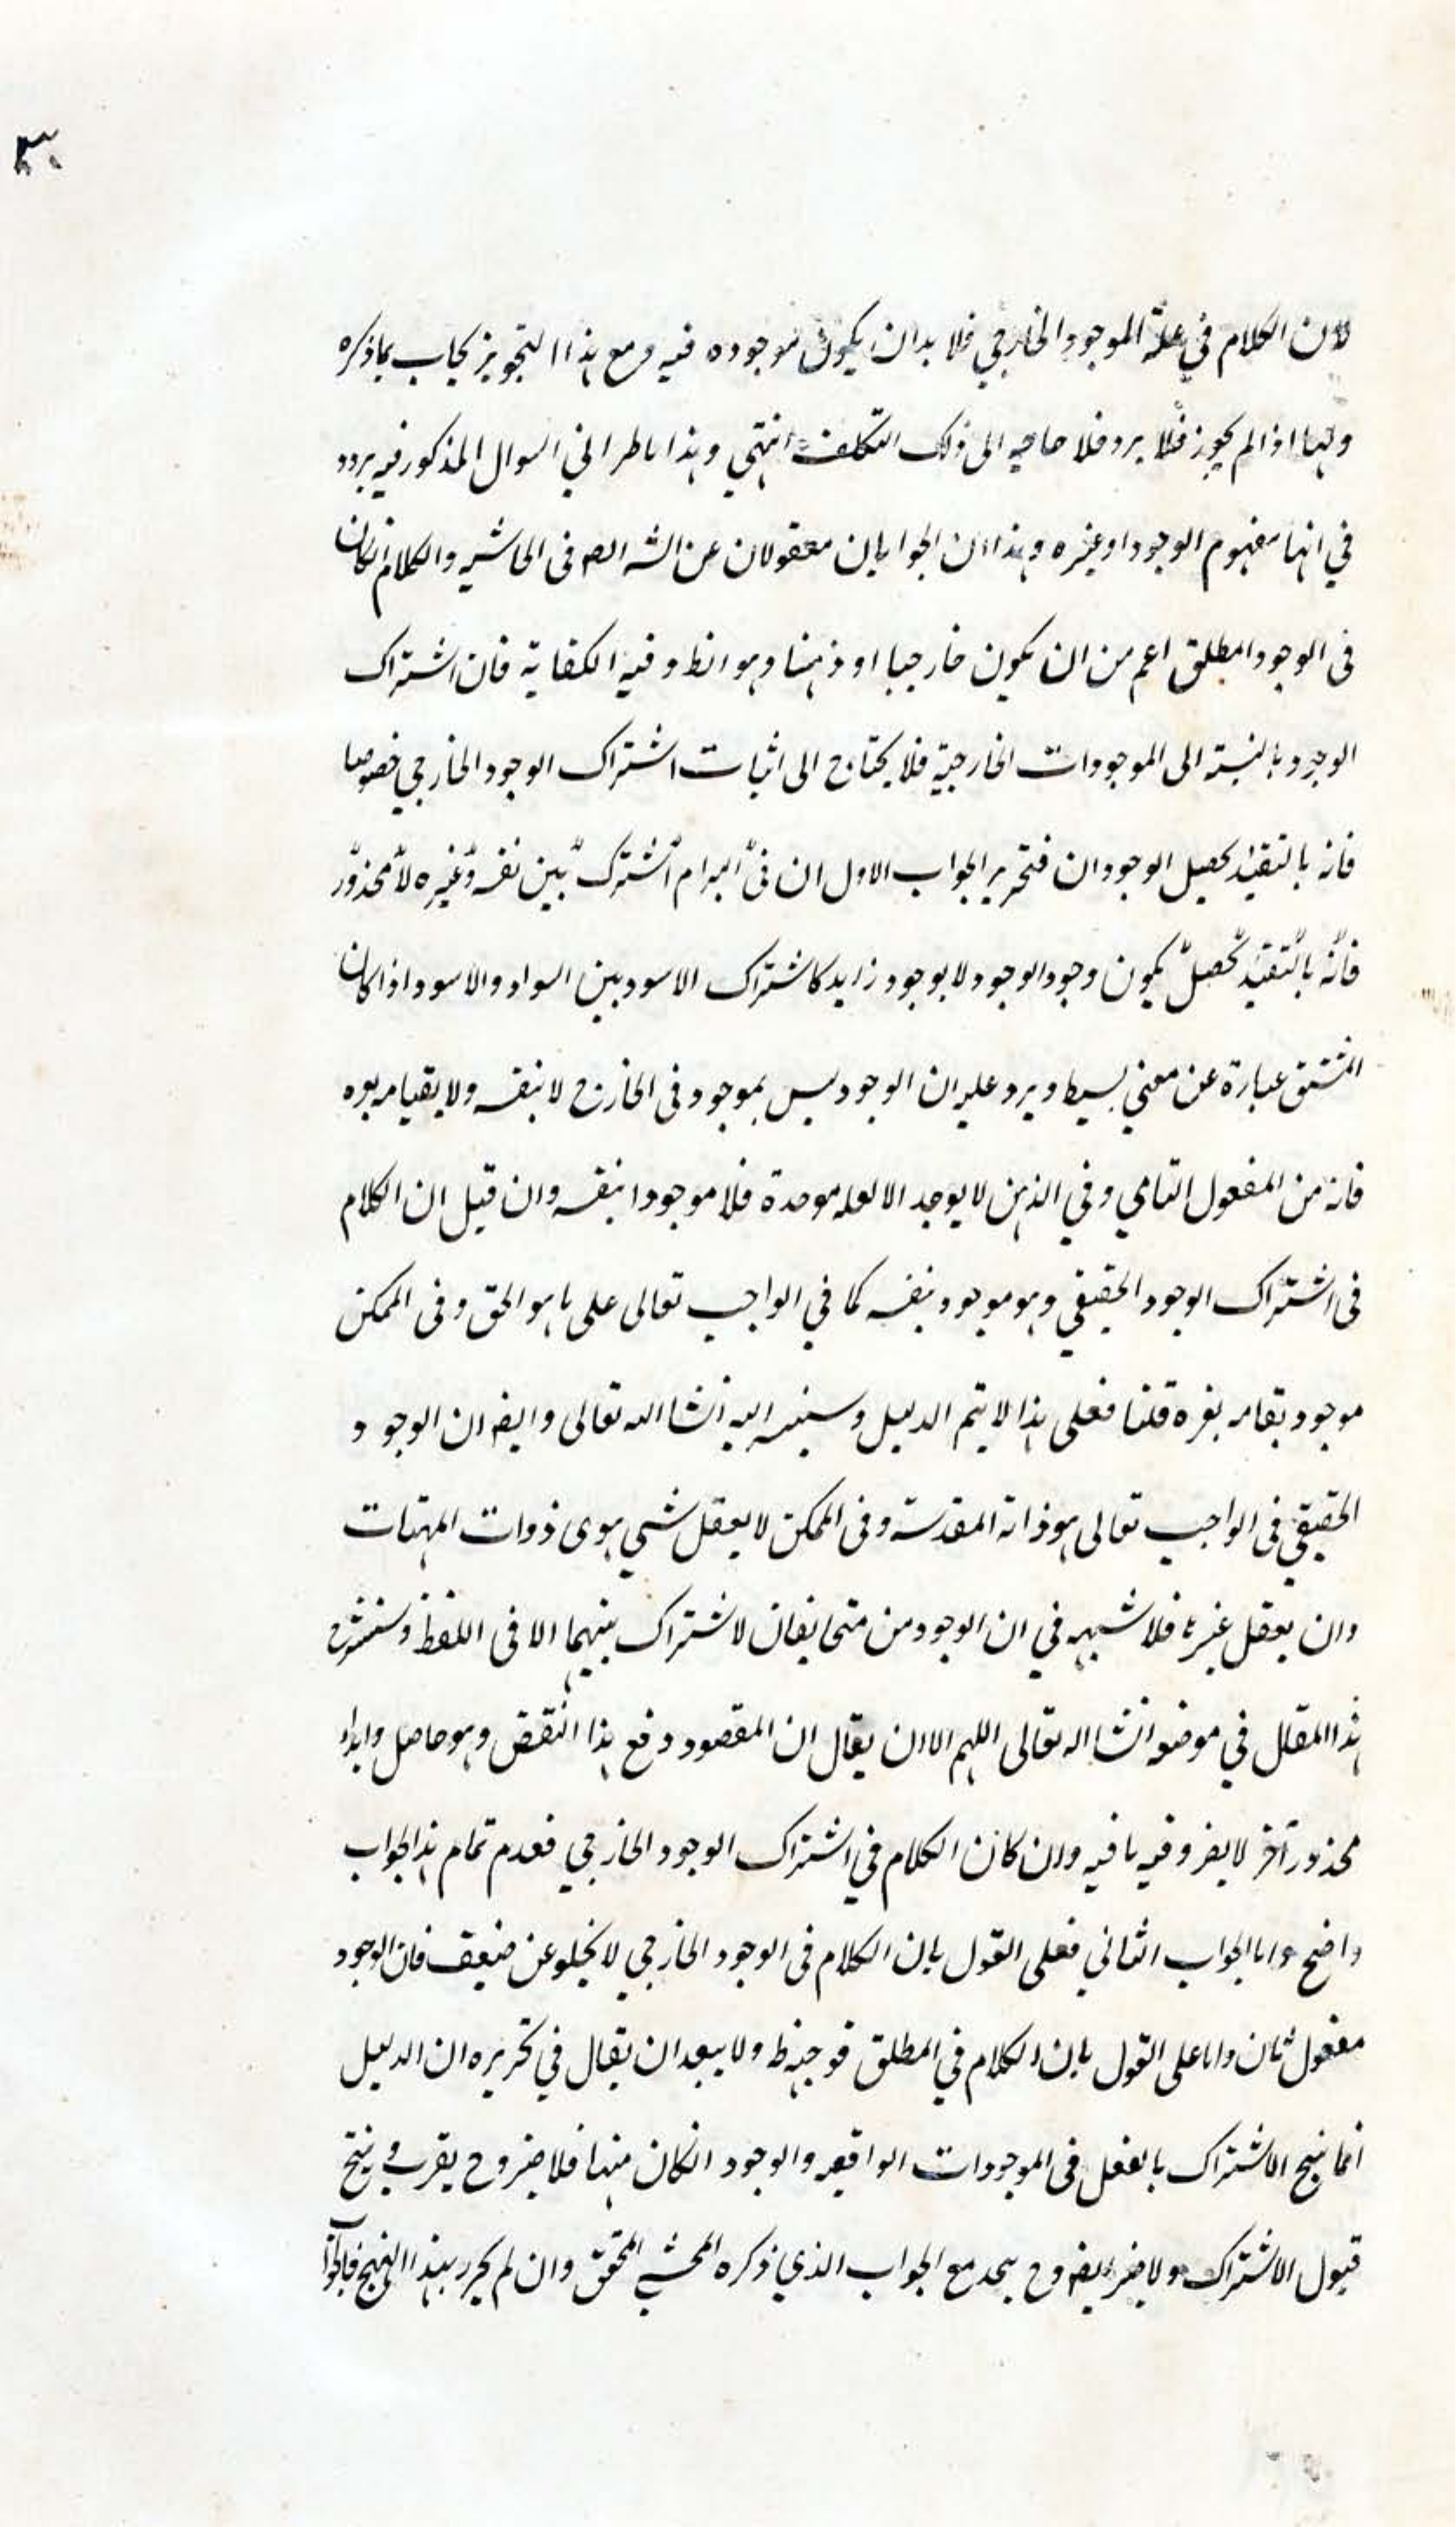 ٣٠
لان الكلام في علة الموجود الخارجي فلا بد ان يكون موجوده فيه ومع هذا التجويز يجاب بما ذكره
ولهنا اذا لم يجوز فلا يرد فلا حاجه الى ذلك التكلف انتهى وهذا ناظر الي السوال المذكور فيه يردد
في انها مفهوم الوجود او غيره وهذا ان الجوابان منقولان عن الشه في الحاشيه والكلام انكان
في الوجود المطلق اعم من ان يكون خارجيا او ذهنيا وهو الظ وفيه الكفاية فان اشتراك
الوجود بالنسبة الى الموجودات الخارجية فلا يحتاج الى اثبات اشتراك الوجود الخارجي خصوصا
فانه بالتقييد يحصل الوجود ان فتحرير الجواب الاول ان في المرام اشترك بين نفسه وغيره لا محذور
فانه بالتقييد تحصل يكون وجود الوجود لا بوجود زايد كاشتراك الاسود بين السواد والاسود اذا كان
المشتق عبارة عن معني بسيط ويرد عليه ان الوجود ليس بموجود في الخارج لا بنفسه ولا بقيامه بوه
فانه من المعقول الثاني وفي الذهن لا يوجد الا لعله موحدة فلا موجودا بنفسه وان قيل ان الكلام
في اشتراك الوجود الحقيقي وهو موجود بنفسه كما في الواجب تعالى على ما هو الحق وفي الممكن
موجود بقيامه بغيره قلنا فعلى هذا لا يتم الدليل وسنبينه اليه انشا الله تعالى وايضه ان الوجود
الحقيقي في الواجب تعالى هو ذاته المقدسة وفي الممكن لا يعقل شي سوى ذوات المهيات
وان يعقل غيرها فلا شبهه في ان الوجودين متخالفان لا اشتراك بينهما الا في اللفظ وسنشرح
هذا المقال في موضعه انشا الله تعالى اللهم الا ان يقال ان المقصود دفع هذا النقض وهو حاصل وايراد
محذور آخر لا يضر وفيه ما فيه وان كان الكلام في اشتراك الوجود الخارجي فعدم تمام هذا الجواب
واضح واما الجواب الثاني فعلى القول بان الكلام في الوجود الخارجي لا يخلو عن ضعف فان الوجود
معقول ثان واما على القول بان الكلام في المطلق فوجهه ظ ولا يبعد ان يقال في تحريره ان الدليل
انما ينتج الاشتراك بالفعل في الموجودات الواقعه والوجود انكان منها فلا ضير وح يقرب وينتج
قبول الاشتراك ولا ضير ايضه وح يتحد مع الجواب الذي ذكره المحشي المحقق وان لم يحرر بهذا النهج فالجوا